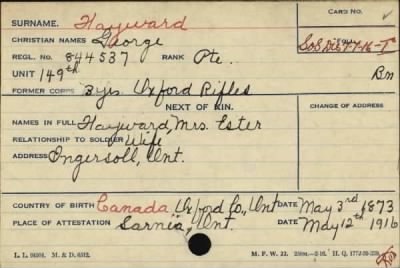 SURNAME. Hayward
CARD NO.
CHRISTIAN NAMES George
REGL. NO. 844537 RANK Pte.
FOLL.
SOS Dis 7-7-16-T
UNIT 149th Bn
FORMER CORPS 3yrs. Oxford Rifles
NEXT OF KIN.
CHANGE OF ADDRESS
NAMES IN FULL Hayward, Mrs. Ester
RELATIONSHIP TO SOLDIER Wife
ADDRESS Ingersoll, Ont.
COUNTRY OF BIRTH Canada Oxford Co., Ont DATE May 3rd 1873
PLACE OF ATTESTATION Sarnia, Ont. DATE May 12th 1916
L. L. M. & D. 6512. M. F. W. 22. H. Q. 1772-39-339.